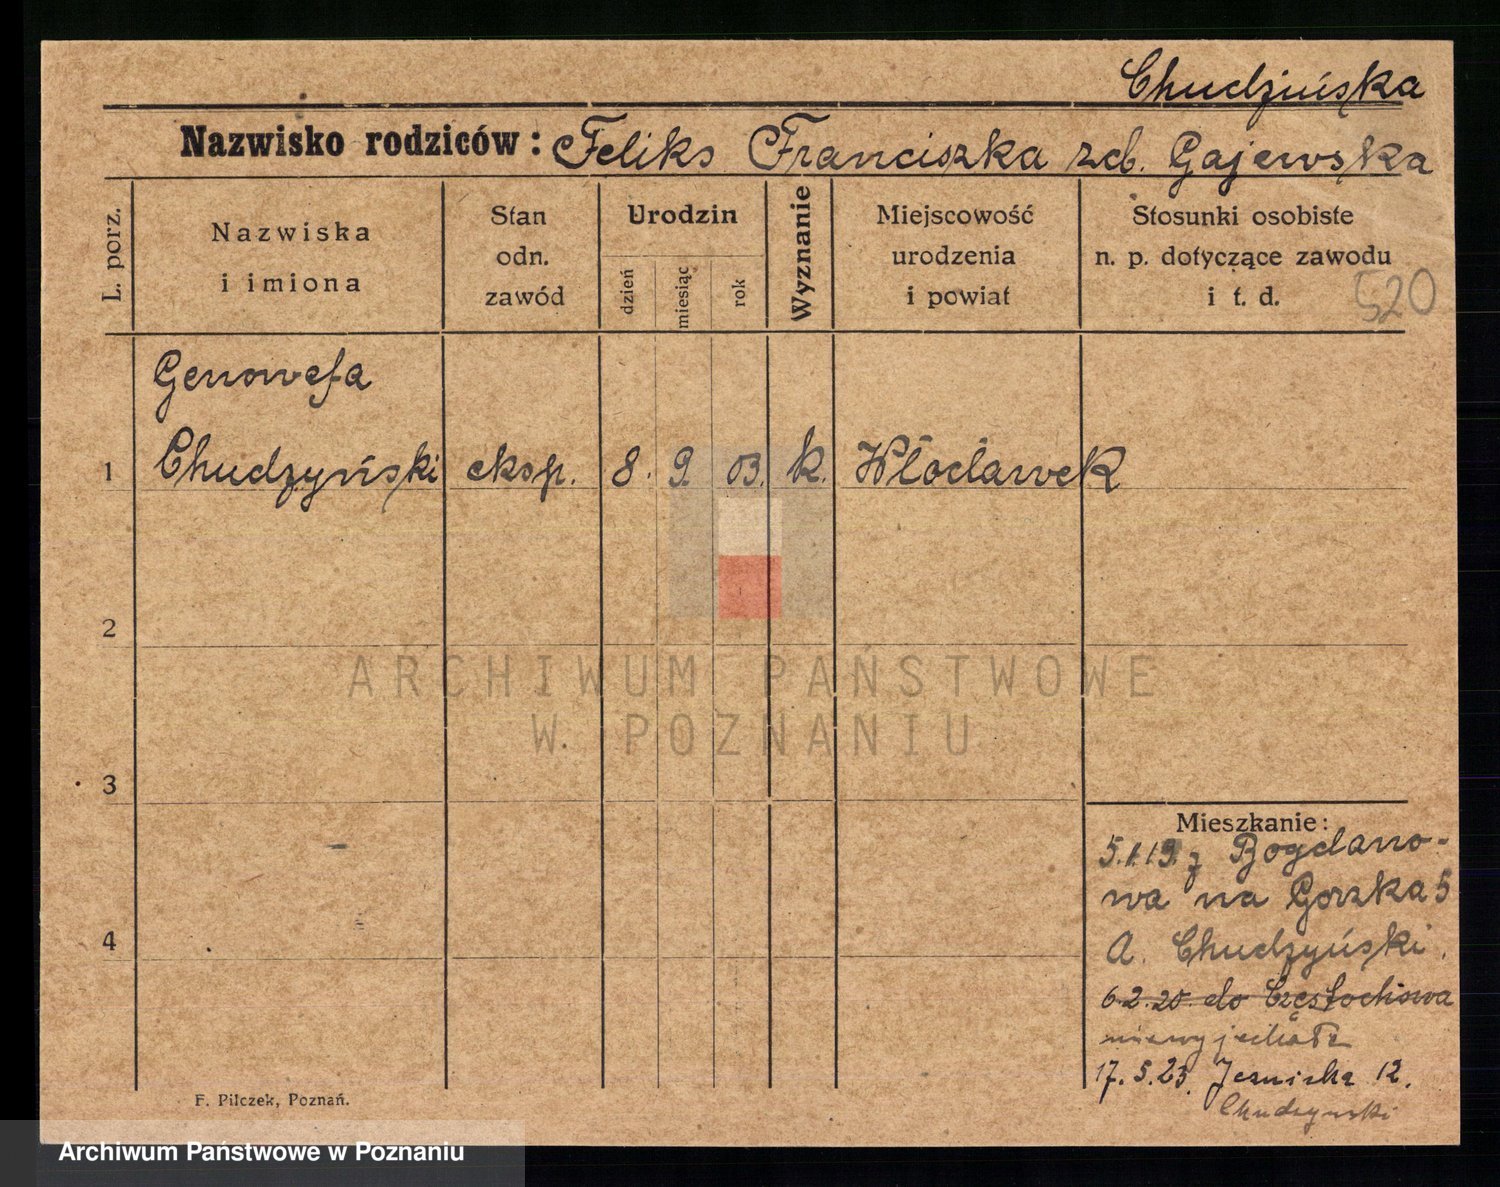 Chudzińska
Nazwisko rodziców: Feliks Franciszka zd. Gajewska
L. porz.
Nazwiska
i imiona
Stan
odn.
zawód
Urodzin
dzień
miesiąc
rok
Wyznanie
Miejscowość
urodzenia
i powiat
Stosunki osobiste
n. p. dotyczące zawodu
i t. d.
520
Genowefa
1 Chudzyński eksp. 8. 9. 03. k. Włocławek
2
ARCHIWUM PAŃSTWOWE
W POZNANIU
3
4
Mieszkanie:
5.1.19. z Bogdano-
wa na Gorzka 5
A. Chudzyński.
6.2.20. do Częstochowa
niewyjechała
17. 5. 23. 12.
Chudzynski
F. Pilczek, Poznań.
Archiwum Państwowe w Poznaniu